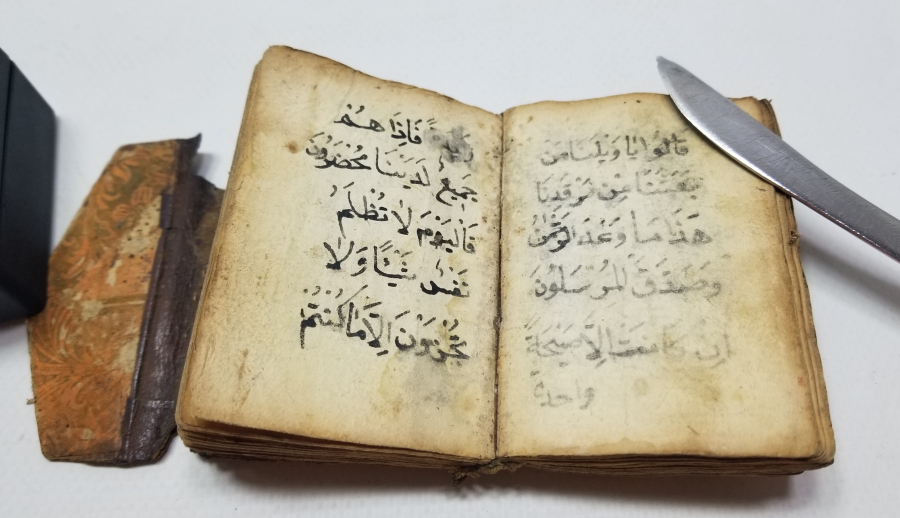 قالوا يا ويلنا من
بعثنا من مرقدنا
هذا ما وعد الرحمن
وصدق المرسلون
ان كانت الا صيحة
واحدة
فَاِذَا هُمْ
جميع لدينا محضرون
فَاليَوْمَ لَا تُظْلَمُ
نفس شيئًا وَلَا
تجزون اِلَّا مَا كُنْتُمْ